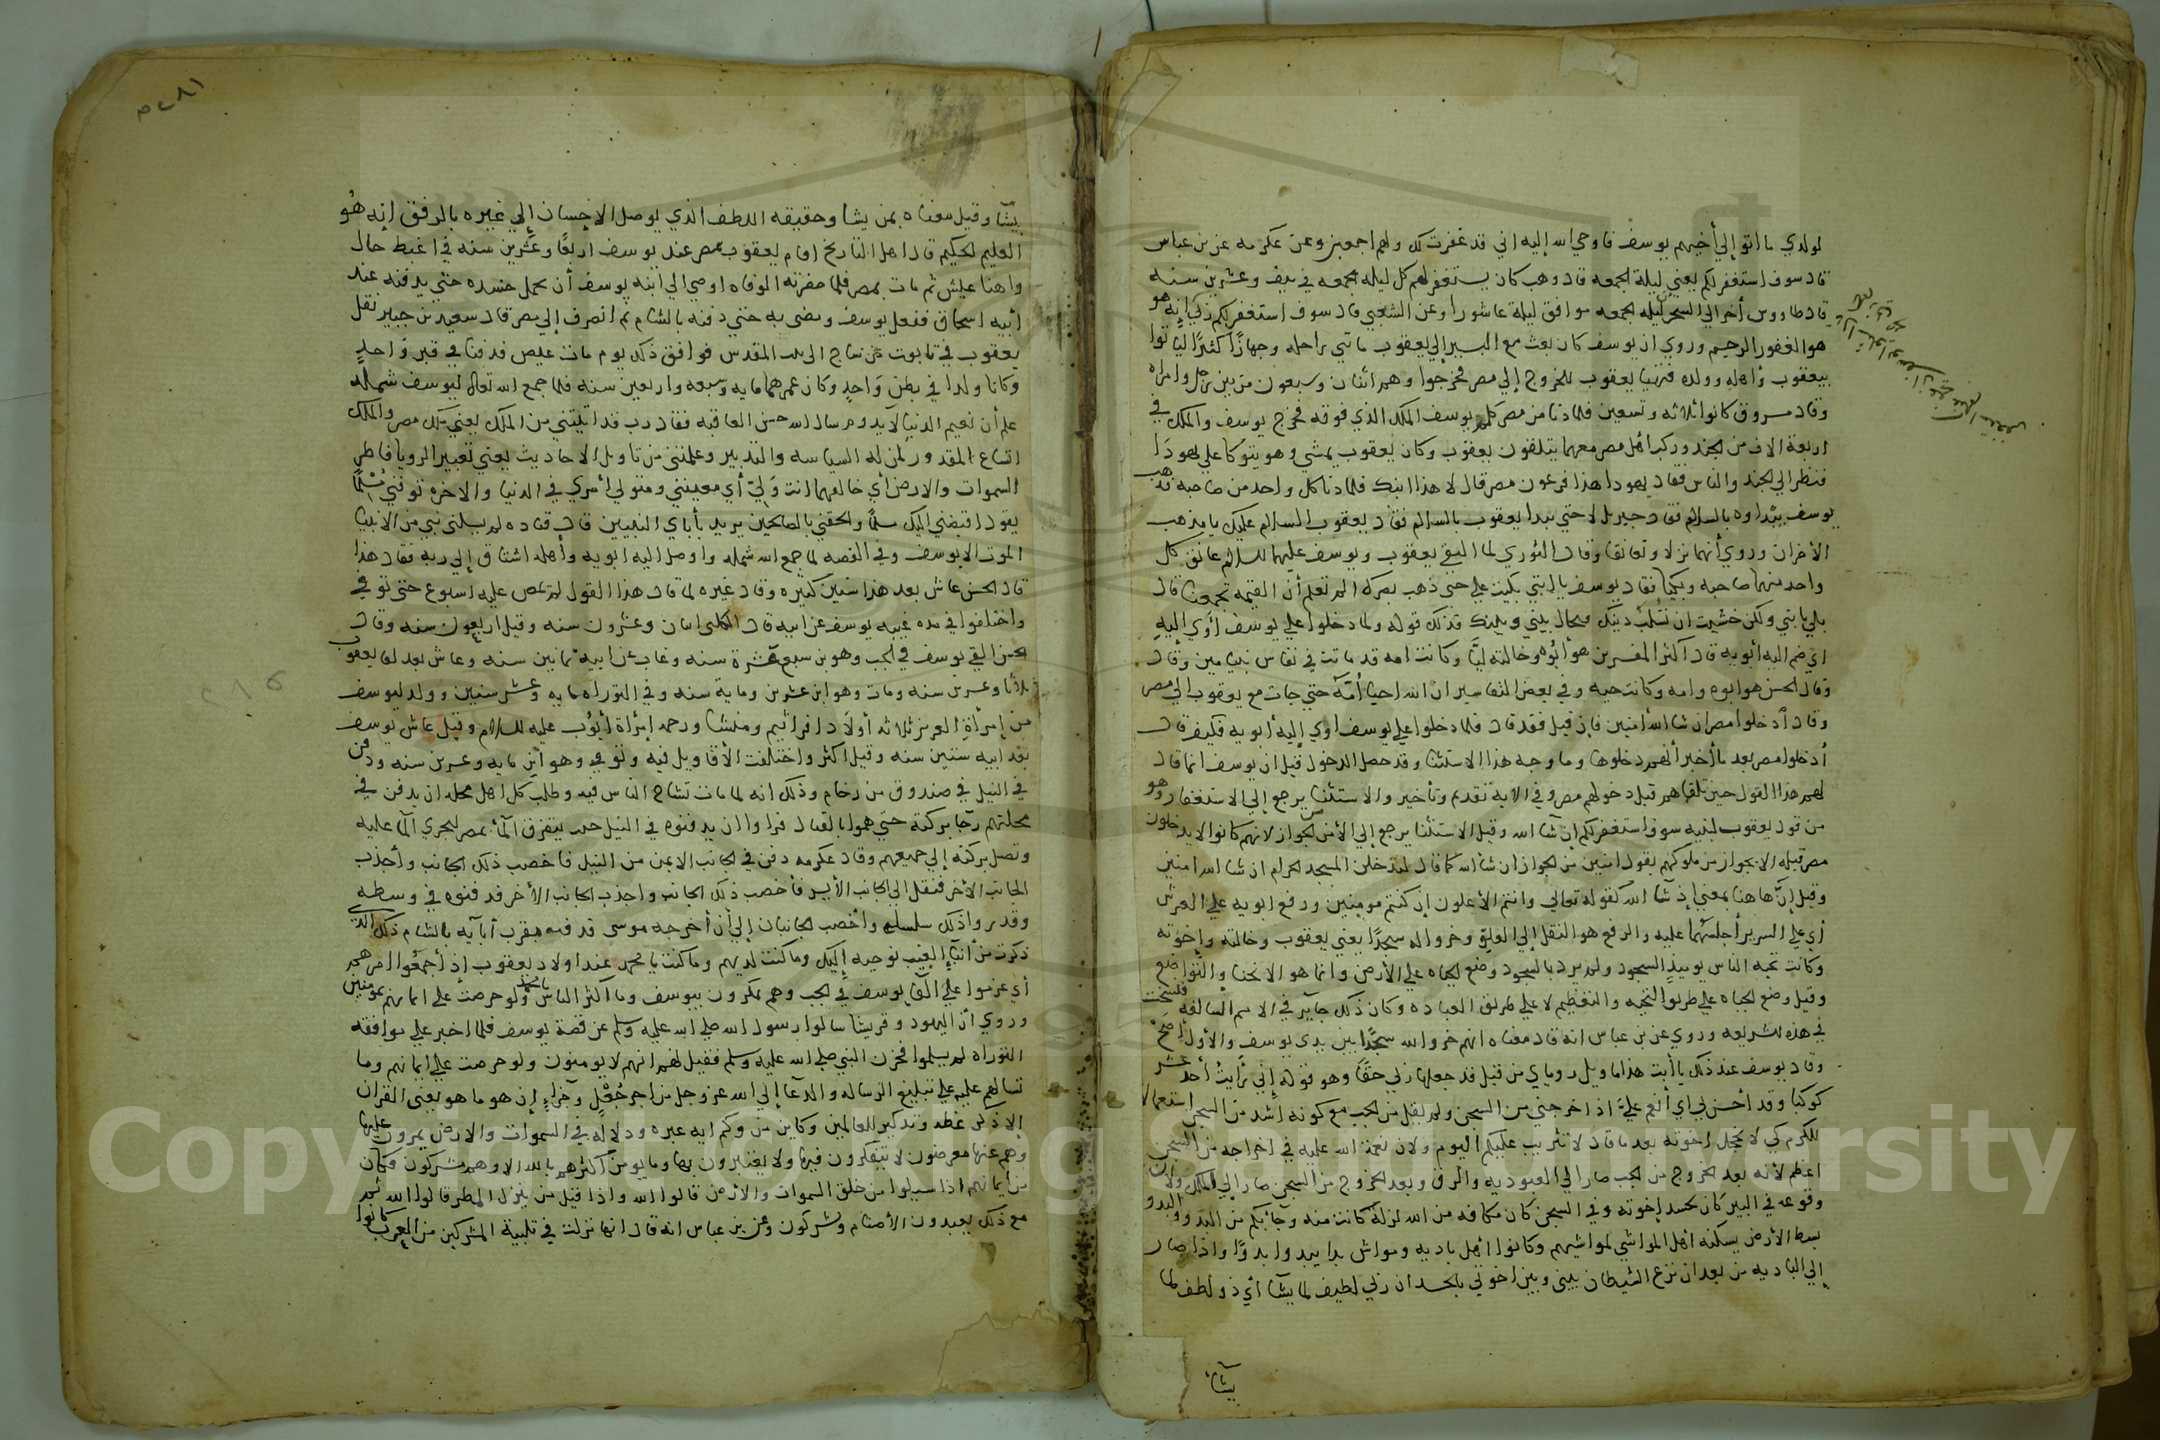 لولدي ما اتوا إلي أخيهم يوسف فاوحي الله إليه اني قد غفرت لك ولهم اجمعين وعن عكرمه عن بن عباس
قال سوف استغفر لكم يعني ليلة الجمعه قال وهب كان يستغفر لهم كل ليله جمعه في نيف وعشرين سنه
قال طاووس أخر الي السحر ليله الجمعه فوافق ليلة عاشورا وعن الشعبي قال سوف استغفر لكم ربي إنه هو
هو الغفور الرحيم وروي ان يوسف كان بعث مع البشير إلي يعقوب مائتي راحله وجهازًا كثيرًا لياتوا
بيعقوب وأهله وولده فتهيا يعقوب للخروج إلي مصر فخرجوا وهم اثنان وسبعون من بين رجل وامراه
وقال مسروق كانوا ثلاثه وتسعين فلما دنا من مصر كلم يوسف الملك الذي فوقه فخرج يوسف والملك في
اربعة الاف من الجند وركب اهل مصر معهما يتلقون يعقوب وكان يعقوب يمشي وهو يتوكا علي يهودا
فنظر الي الخيل والناس فقال يهودا هذا فرعون مصر قال لا هذا ابنك فلما دنا كل واحد من صاحبه ذهب
يوسف يبداوه بالسلام فقال جبريل لا حتي يبدا يعقوب بالسلام فقال يعقوب السلام عليك يا مذهب
الأحزان وروي أنهما نزلا وتعانقا وقال الثوري لما التقي يعقوب ويوسف عليهما السلام عانق كل
واحد منهما صاحبه وبكيا فقال يوسف يا ابتي بكيت علي حتى ذهب بصرك الم تعلم أن القيمه تجمعنا قال
بلي يا بني ولكن خشيت ان تسلب دينك فيحال بيني وبينك فذلك قوله ولما دخلوا علي يوسف اوي إليه
اي ضم اليه أبويه قال اكثر المفسرين هو أبوه وخالته ليّا وكانت امه قد ماتت في نفاس بنيامين وقال
وقال الحسن هو ابوه وامه وكانت حيه وفي بعض التفاسير ان الله احيا أمه حتي جات مع يعقوب الي مصر
وقال ادخلوا مصر ان شا الله امنين فإن قيل فقد قال فلما دخلوا علي يوسف اوي إليه أبويه فكيف قال
أدخلوا مصر بعد ما أخبر أنهم دخلوها وما وجه هذا الاستثنا وقد حصل الدخول قيل ان يوسف انما قال
لهم هذا القول حين تلقاهم قبل دخولهم مصر وفي الاية تقديم وتأخير والاستثنا يرجع إلي الاستغفار وهو
من قول يعقوب لبنيه سوف استغفر لكم إن شا الله وقيل الاستثنا يرجع إلي الأمن من الجواز لانهم كانوا لا يدخلون
مصر قبله الا بجواز من ملوكهم يقول امنين من الجواز ان شا الله كما قال لتدخلن المسجد الحرام ان شا الله امنين
وقيل إنّ هاهنا بمعني إذ شا الله كقوله تعالي وانتم الأعلون إن كنتم مومنين ورفع ابويه علي العرش
أي علي السرير أجلسهما عليه والرفع هو النقل إلي العلو وخروا له سجدًا يعني يعقوب وخالته وإخوته
وكانت تحيه الناس يوميذٍ السجود ولم يرد بالسجود وضع الجباه علي الأرض وانما هو الانحنا والتواضع
وقيل وضع الجباه علي طريق التحيه والتعظيم لا علي طريق العباده وكان ذلك جايز في الامم السالفه فنسخت
في هذه الشريعه وروي عن بن عباس انه قال معناه انهم خروا لله سجدًا بين يدي يوسف والأول أصح
وقال يوسف عند ذلك يا أبت هذا تاويل روياي من قبل قد جعلها ربي حقًا وهو قوله إني رأيت أحد عشر
كوكبًا وقد أحسن بي اي أنعم عليّ اذ اخرجني من السجن ولم يقل من الجب مع كونه اشد من السجن استعمالا
للكرم كي لا يخجل اخوته بعد ما قال لا تثريب عليكم اليوم ولان نعمة الله عليه في اخراجه من السجن
اعظم لأنه بعد الخروج من الجب صار الي العبوديه والرق وبعد الخروج من السجن صار إلي الملك ولان
وقوعه في البير كان لحسد إخوته وفي السجن كان مكافه من الله لزلة كانت منه وجآ بكم من البدو والبدو
بسط الأرض يسكنه اهل المواشي لمواشيهم وكانوا اهل باديه ومواش بدا يبدوا بدوًا واذا صار
إلي الباديه من بعد ان نزغ الشيطان بيني وبين اخوتي بالحسد ان ربي لطيف لما يشا أي ذو لطف لما
يشآ
يشآ وقيل معناه بمن يشا وحقيقه اللطف الذي يوصل الاحسان إلي غيره بالرفق إنه هو
العليم الحكيم قال اهل التاريخ اقام يعقوب بمصر عند يوسف اربعًا وعشرين سنه في اغبط حال
واهنا عيش ثم مات بمصر فلما حضرته الوفاه اوصي الي ابنه يوسف أن يحمل جسده حتي يدفنه عند
أبيه اسحاق ففعل يوسف ومضي به حتي دفنه بالشام ثم انصرف إلي مصر قال سعيد بن جبير نقل
يعقوب في تابوت من ساج الي بيت المقدس فوافق ذلك يوم مات عيص فدفنا في قبر واحدٍ
وكانا ولدا في بطن واحدٍ وكان عمرهما مايه وسبعه واربعين سنه فلما جمع الله تعالى ليوسف شمله
علم أن نعيم الدنيا لا يدوم سال الله حسن العاقبه فقال رب قد اتيتني من الملك يعني ملك مصر والملك
اتساع المقدور لمن له السياسه والتدبير وعلمتني من تاويل الاحاديث يعني تعبير الرويا فاطر
السموات والارض اي خالقهما انت وليّ أي معيني ومتولي أمري في الدنيا والاخره توفني مسلمًا
يقول اقبضني اليك مسلمًا والحقني بالصالحين يريد بأباي النبيين قال قتاده لم يسل نبي من الأنبيا
الموت الا يوسف وفي القصه لما جمع الله شمله واوصل اليه ابويه وأهله اشتاق إلي ربه فقال هذا
قال الحسن عاش بعد هذا سنين كثيره وقال غيره لما قال هذا القول لم يمض عليه اسبوع حتى توفي
واختلفوا في مده غيبه يوسف عن ابيه قال الكلبي اثنان وعشرون سنه وقيل اربعون سنه وقال
الحسن القي يوسف في الجب وهو بن سبع عشرة سنه وغاب عن ابيه ثمانين سنه وعاش بعد لقا يعقوب
ثلاثا وعشرين سنه ومات وهو ابن عشرين وماية سنه وفي التوراه مايه وعشر سنين وولد ليوسف
من إمرأة العزيز ثلاثه أولاد افراثيم ومنشا ورحمه إمرأة أيوب عليه السلام وقيل عاش يوسف
بعد ابيه ستين سنه وقيل اكثر واختلفت الأقاويل فيه وتوفي وهو أبن مايه وعشرين سنه ودفن
في النيل في صندوق من رخام وذلك انه لما مات تشاح الناس فيه وطلب كل اهل محله ان يدفن في
محلتهم رجا بركته حتي هموا بالقتال فراوا ان يدفنوه في النيل حيث يتفرق المآ بمصر ليجري المآ عليه
وتصل بركته إلي جميعهم وقال عكرمه دفن في الجانب الايمن من النيل فاخصب ذلك الجانب وأجدب
الجانب الأخر فنقل الي الجانب الأيسر فأخصب ذلك الجانب واجدب الجانب الأخر فدفنوه في وسطه
وقدروا ذلك بسلسله وأخصب الجانبان إلي أن أخرجه موسى فدفنه بقرب أبآيه بالشام ذلك الذي
ذكرت من أنبآ الغيب نوحيه إليك وما كنت لديهم وما كنت يا محمد عند اولاد يعقوب إذ أجمعوا أمرهم
أي عزموا علي القا يوسف في الجب وهم يمكرون بيوسف وما اكثر الناس يا محمد ولو حرصت علي ايمانهم بمومنين
وروي أن اليهود وقريشا سالوا رسول الله صلي الله عليه وسلم عن قصة يوسف فلما اخبر علي موافقه
التوراه لم يسلموا فحزن النبي صلي الله عليه وسلم فقيل لهم انهم لا يومنون ولو حرصت علي ايمانهم وما
تسالهم عليه علي تبليغ الرساله والدعا إلي الله عز وجل من اجرٍ جُعْلٍ وجزاءٍ إن هو ما هو يعني القران
إلا ذكر عظه وتذكير للعالمين وكاين من وكم ايه عبره ودلاله في السموات والارض يمرون عليها
وهم عنها معرضون لا يتفكرون فيها ولا يعتبرون بها وما يومن اكثرهم بالله الا وهم مشركون فكان
من إيمانهم اذا سيلوا من خلق السموات والارض قالوا الله واذا قيل من ينزل المطر قالوا الله ثم
مع ذلك يعبدون الأصنام ويشركون وعن بن عباس انه قال انها نزلت في تلبية المشركين من العرب كانوا
Copy King Saud University